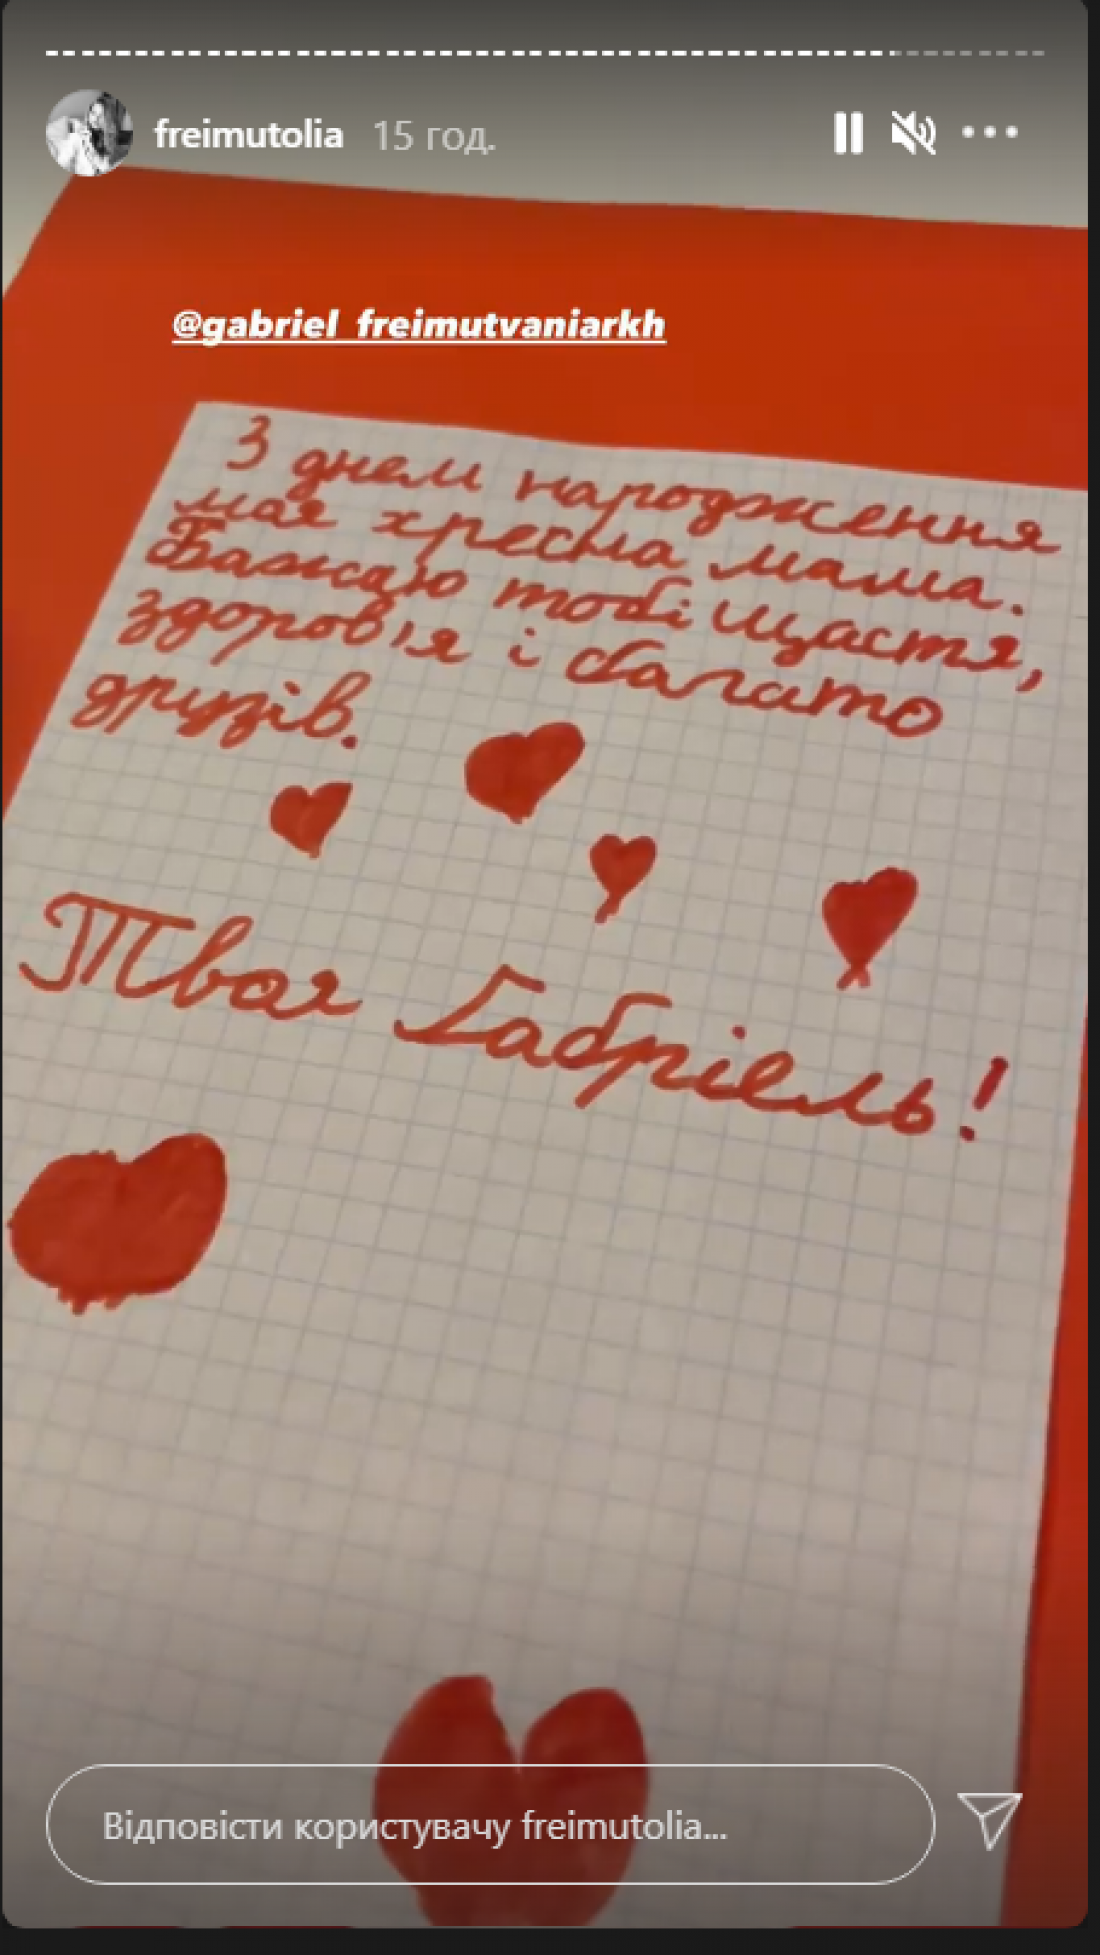 freimutolia 15 год.
@gabriel_freimutvaniarkh
З днем народження
моя хресна мама.
Бажаю тобі щастя,
здоров'я і багато
друзів.
Твоя Габріель!
Відповісти користувачу freimutolia...